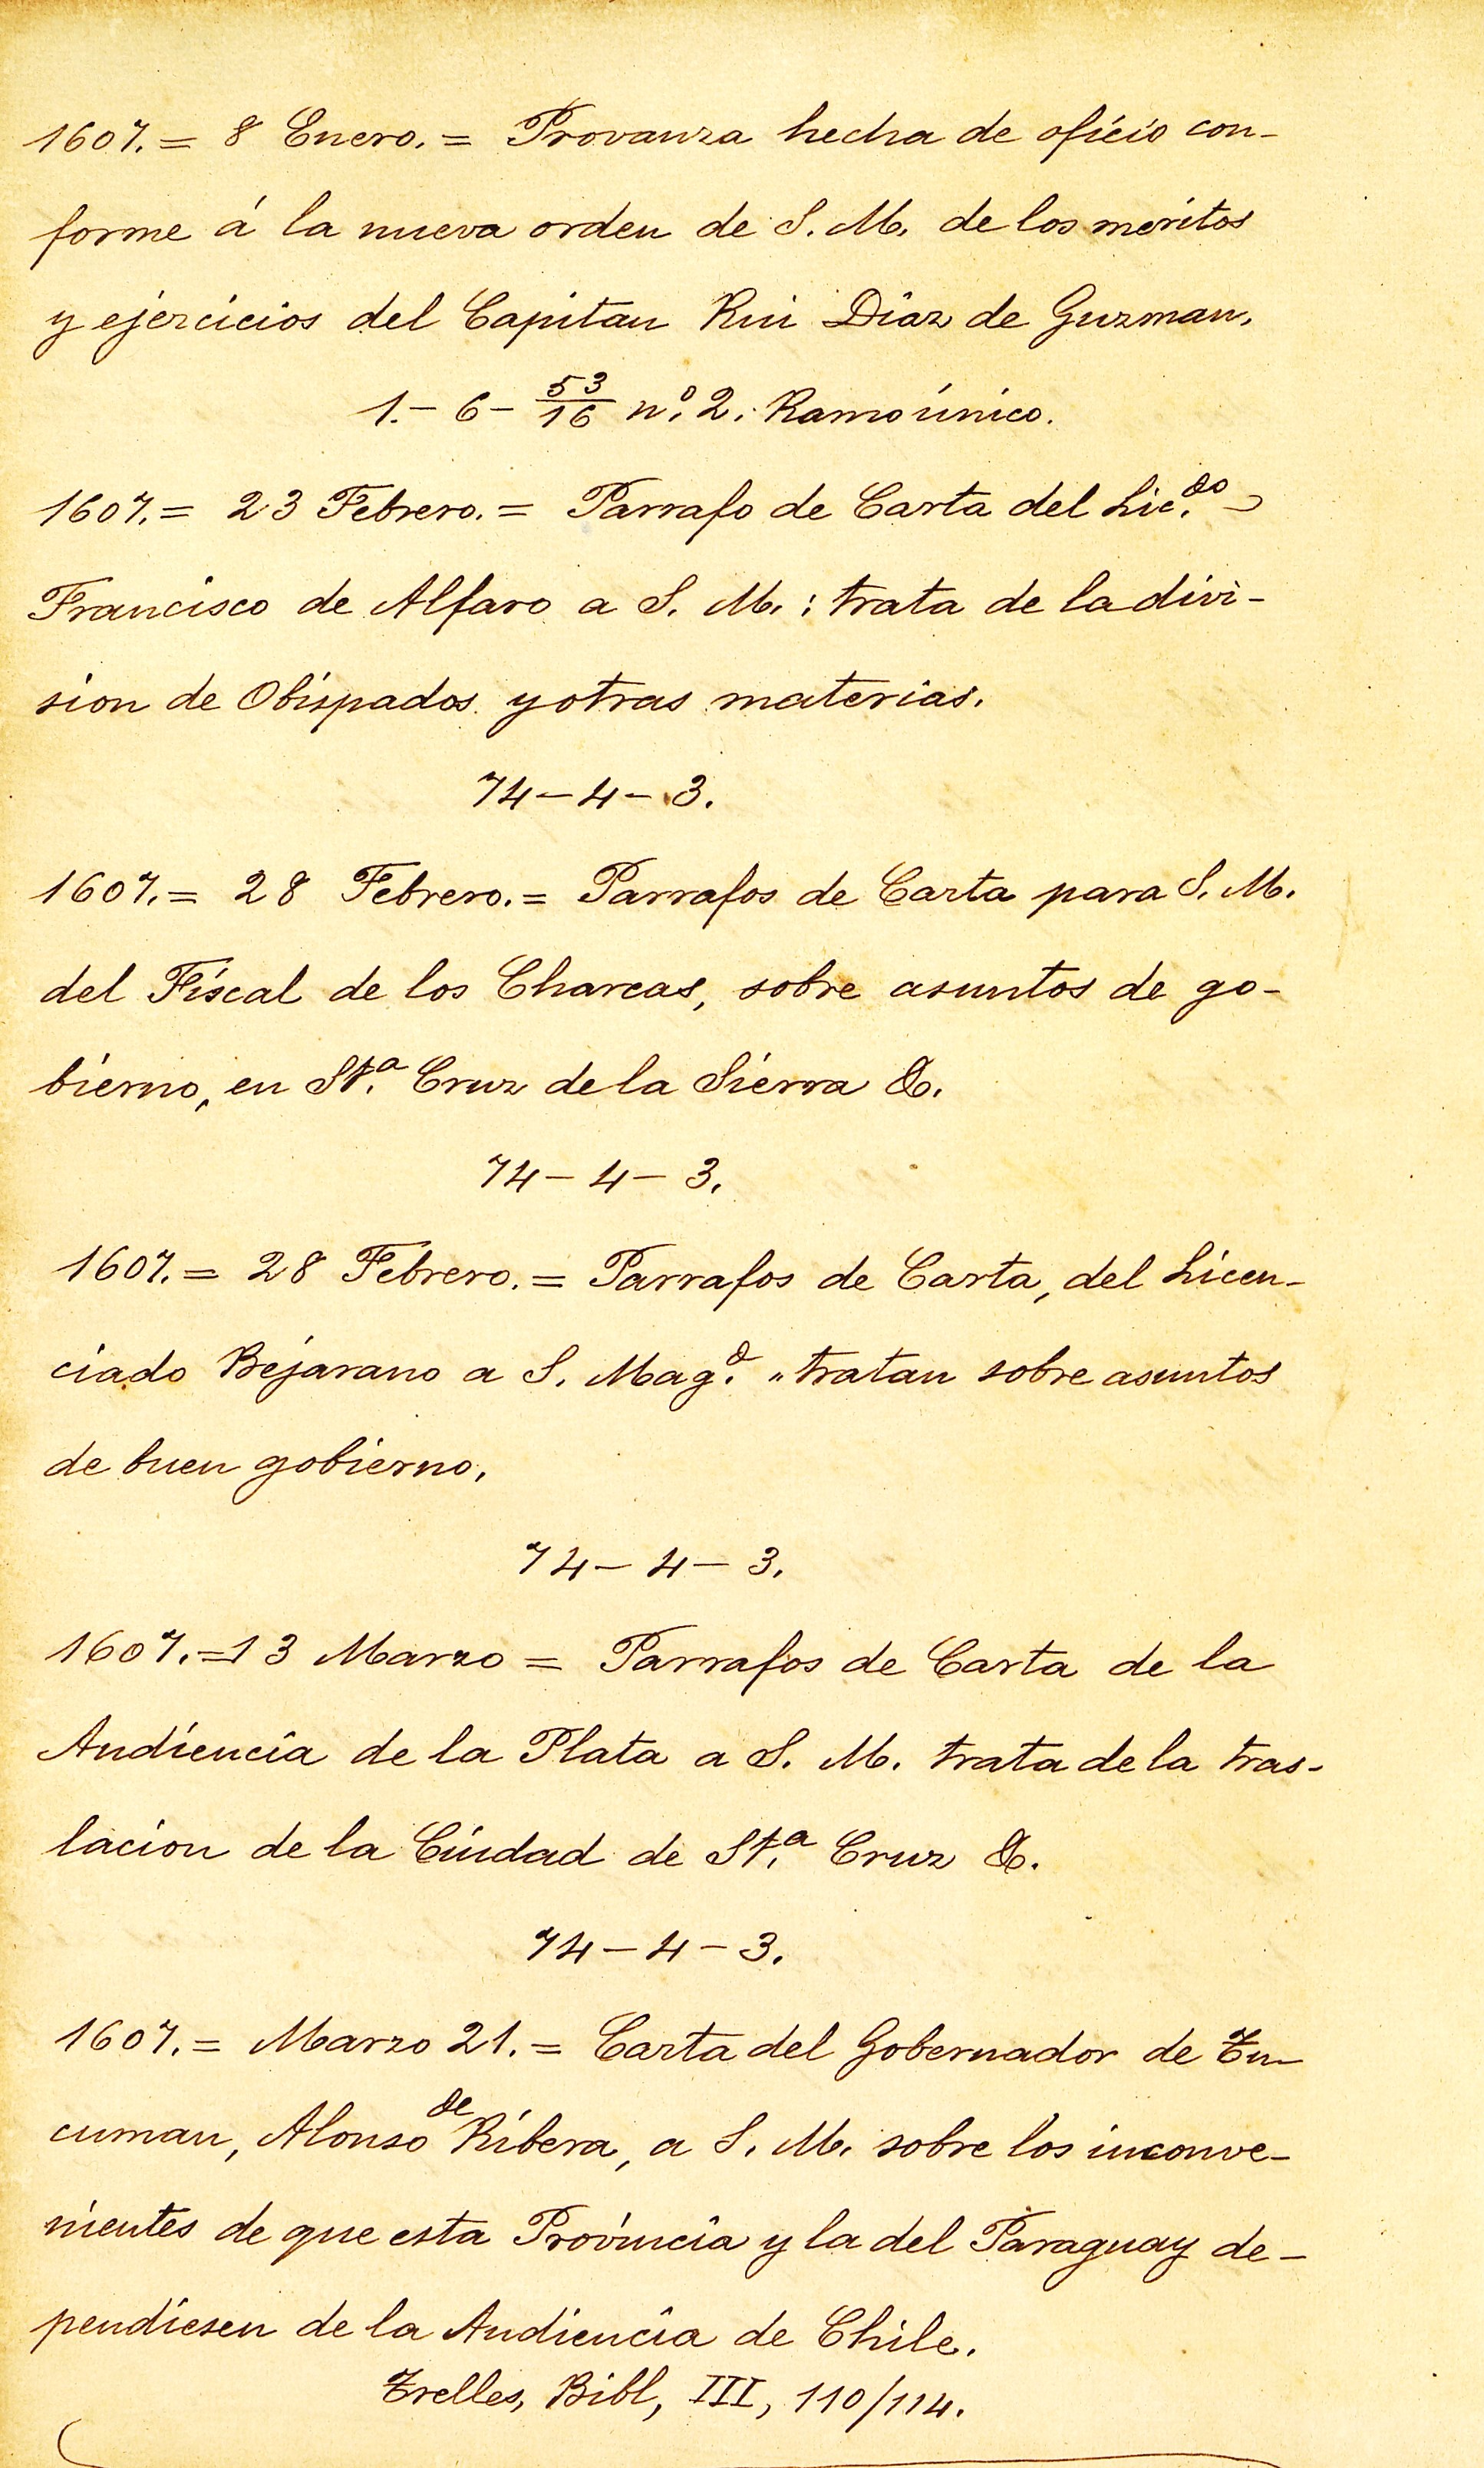 1607. = 8 Enero. = Provanza hecha de oficio con-
forme á la nueva orden de S. M. de los meritos
y ejercicios del Capitan Rui Diaz de Guzman.
1.- 6 - 53/16 nº. 2. Ramo único.
1607. = 23 Febrero. = Parrafo de Carta del Lic.do
Francisco de Alfaro a S. M. : trata de la divi-
sion de Obispados y otras materias.
74 - 4 - 3.
1607. = 28 Febrero. = Parrafos de Carta para S. M.
del Fiscal de los Charcas, sobre asuntos de go-
bierno, en St.a Cruz de la Sierra &.
74 - 4 - 3.
1607. = 28 Febrero. = Parrafos de Carta, del Licen-
ciado Bejarano a S. Mag.d „ tratan sobre asuntos
de buen gobierno.
74 - 4 - 3.
1607. = 13 Marzo = Parrafos de Carta de la
Audiencia de la Plata a S. M. trata de la tras-
lacion de la Ciudad de St.a Cruz &.
74 - 4 - 3.
1607. = Marzo 21. = Carta del Gobernador de Tu-
cuman, Alonso de Ribera, a S. M. sobre los inconve-
nientes de que esta Provincia y la del Paraguay de-
pendiesen de la Audiencia de Chile.
Trelles, Bibl, III, 110/114.